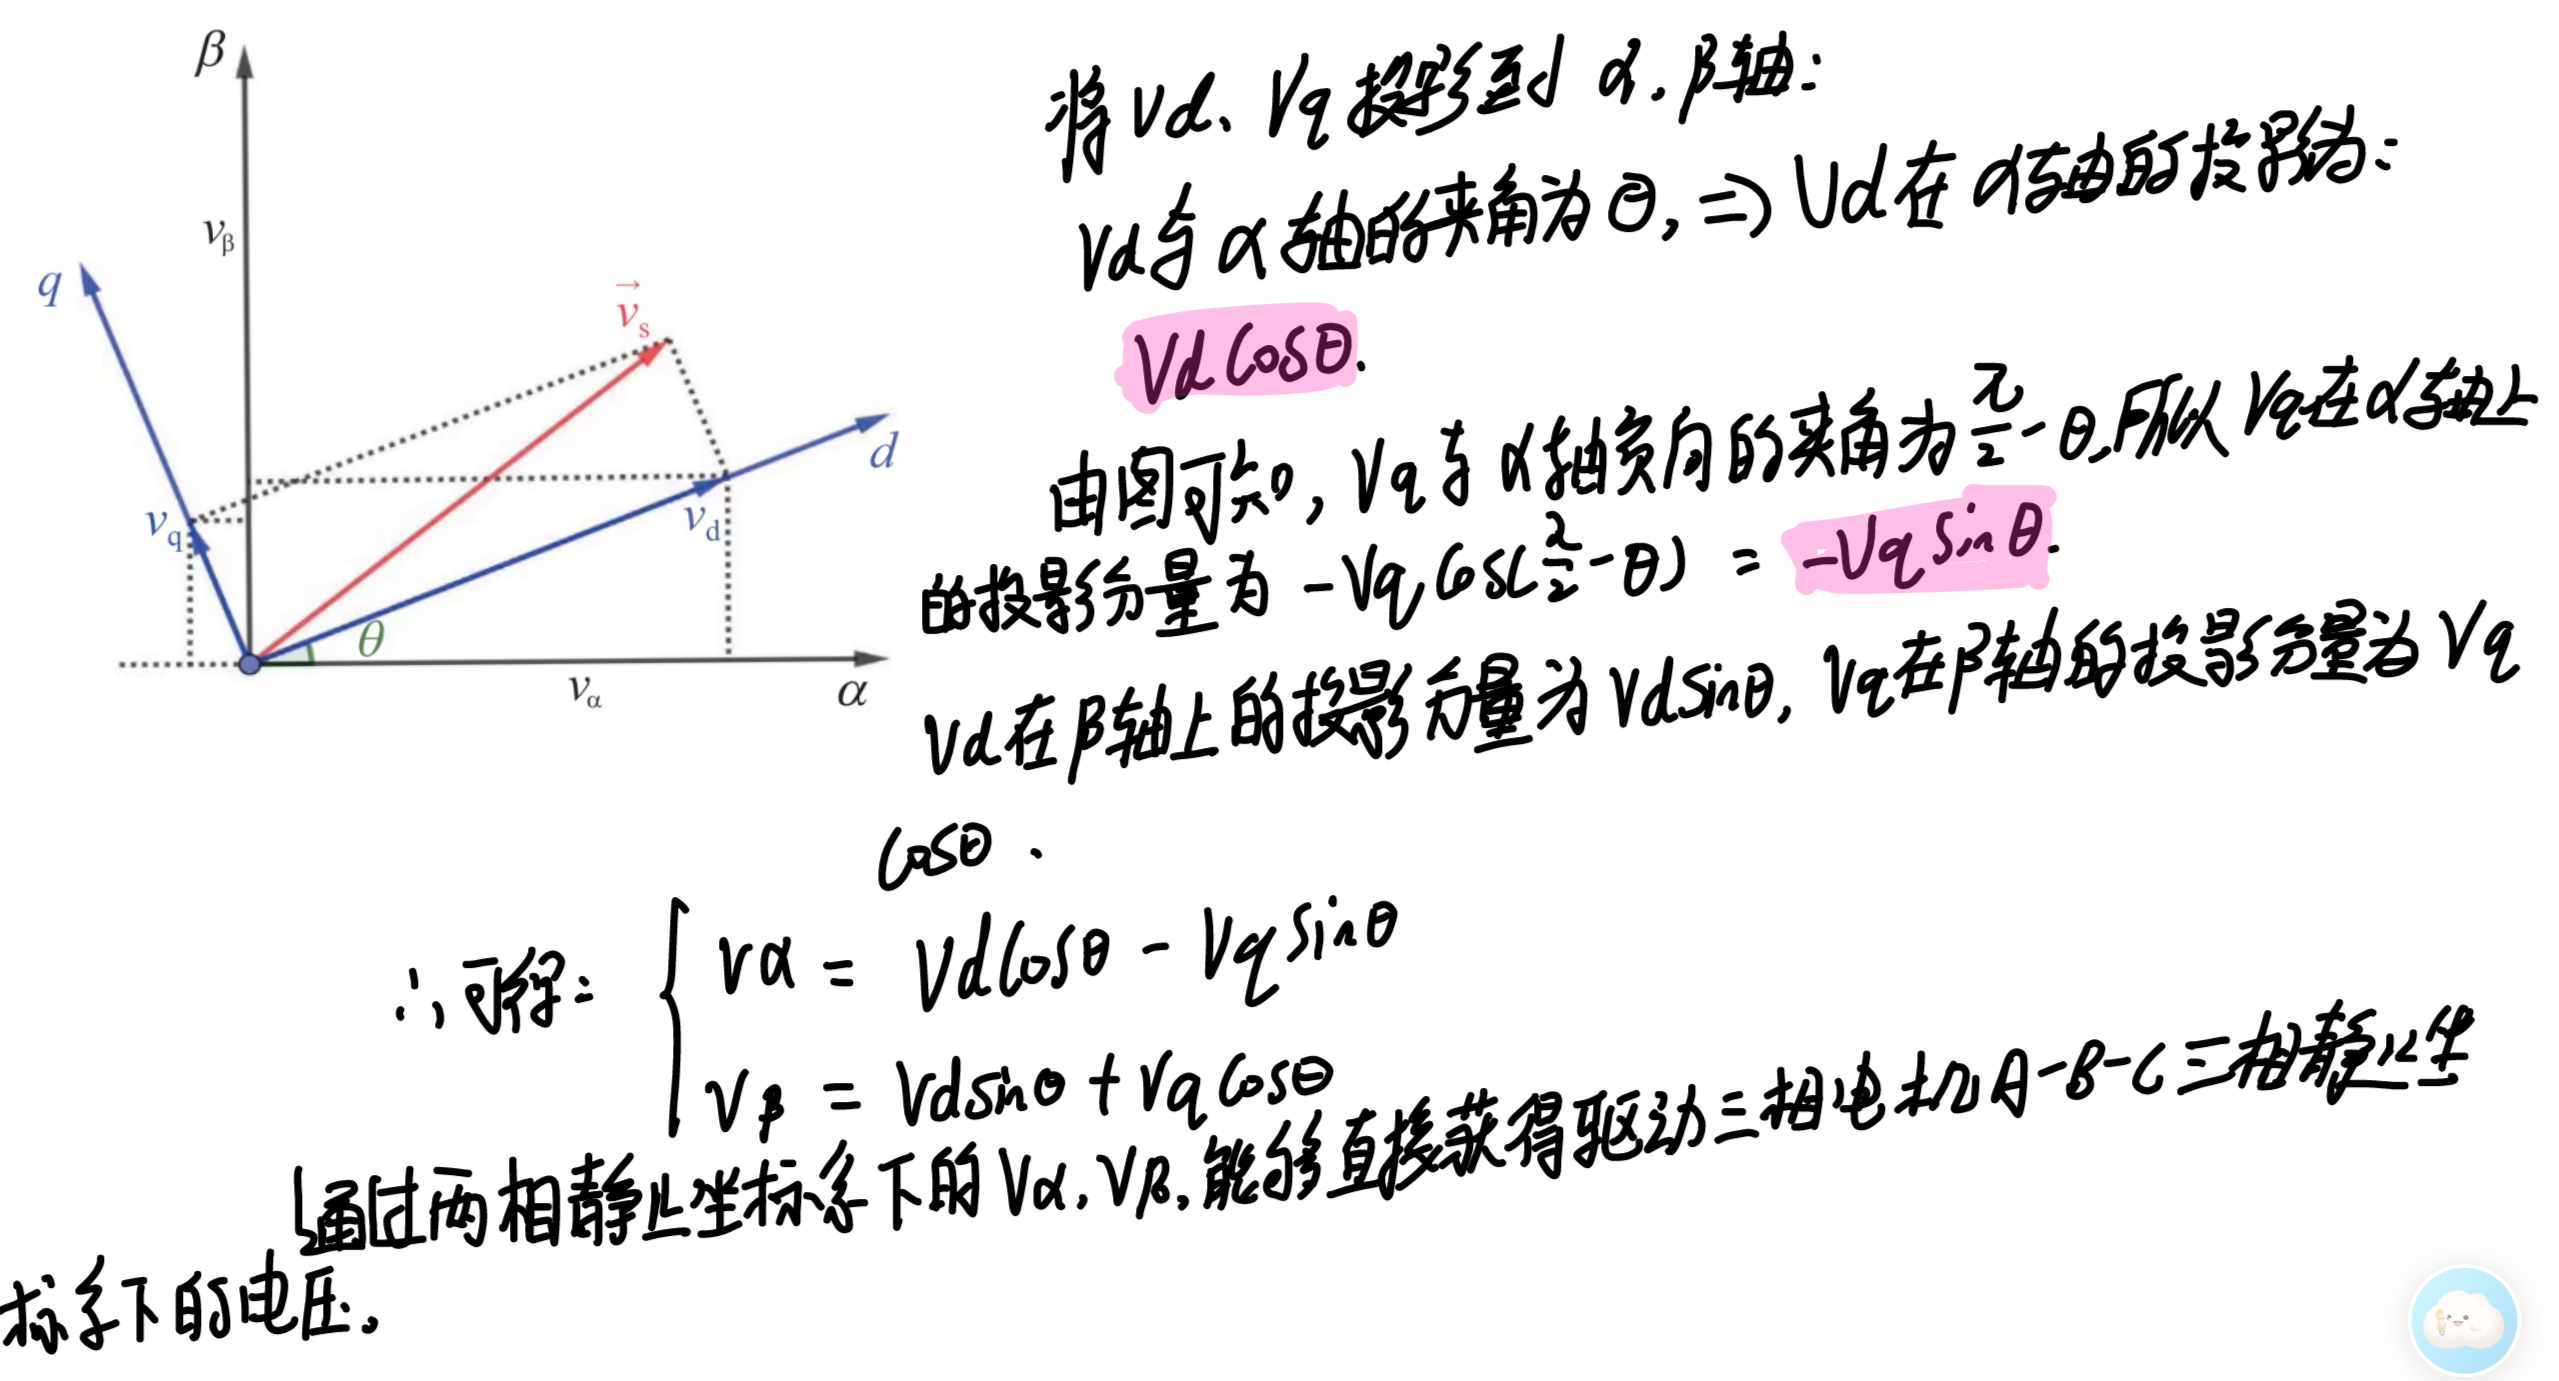 β
v_β
q
v⃗_s
d
v_q
v_d
θ
v_α
α
将Vd、Vq投影到α、β轴:
Vd与α轴的夹角为θ, ⇒ Vd在α轴的投影为:
Vd cosθ.
由图可知, Vq与α轴负向的夹角为π/2-θ, 所以Vq在α轴上
的投影分量为 -Vq cos(π/2-θ) = -Vq sinθ.
Vd在β轴上的投影分量为Vdsinθ, Vq在β轴的投影分量为Vq
cosθ.
∴, 可得: { Vα = Vdcosθ - Vqsinθ
Vβ = Vdsinθ + Vqcosθ
↳通过两相静止坐标系下的Vα, Vβ, 能够直接获得驱动三相电机A-B-C三相静止坐
标系下的电压。